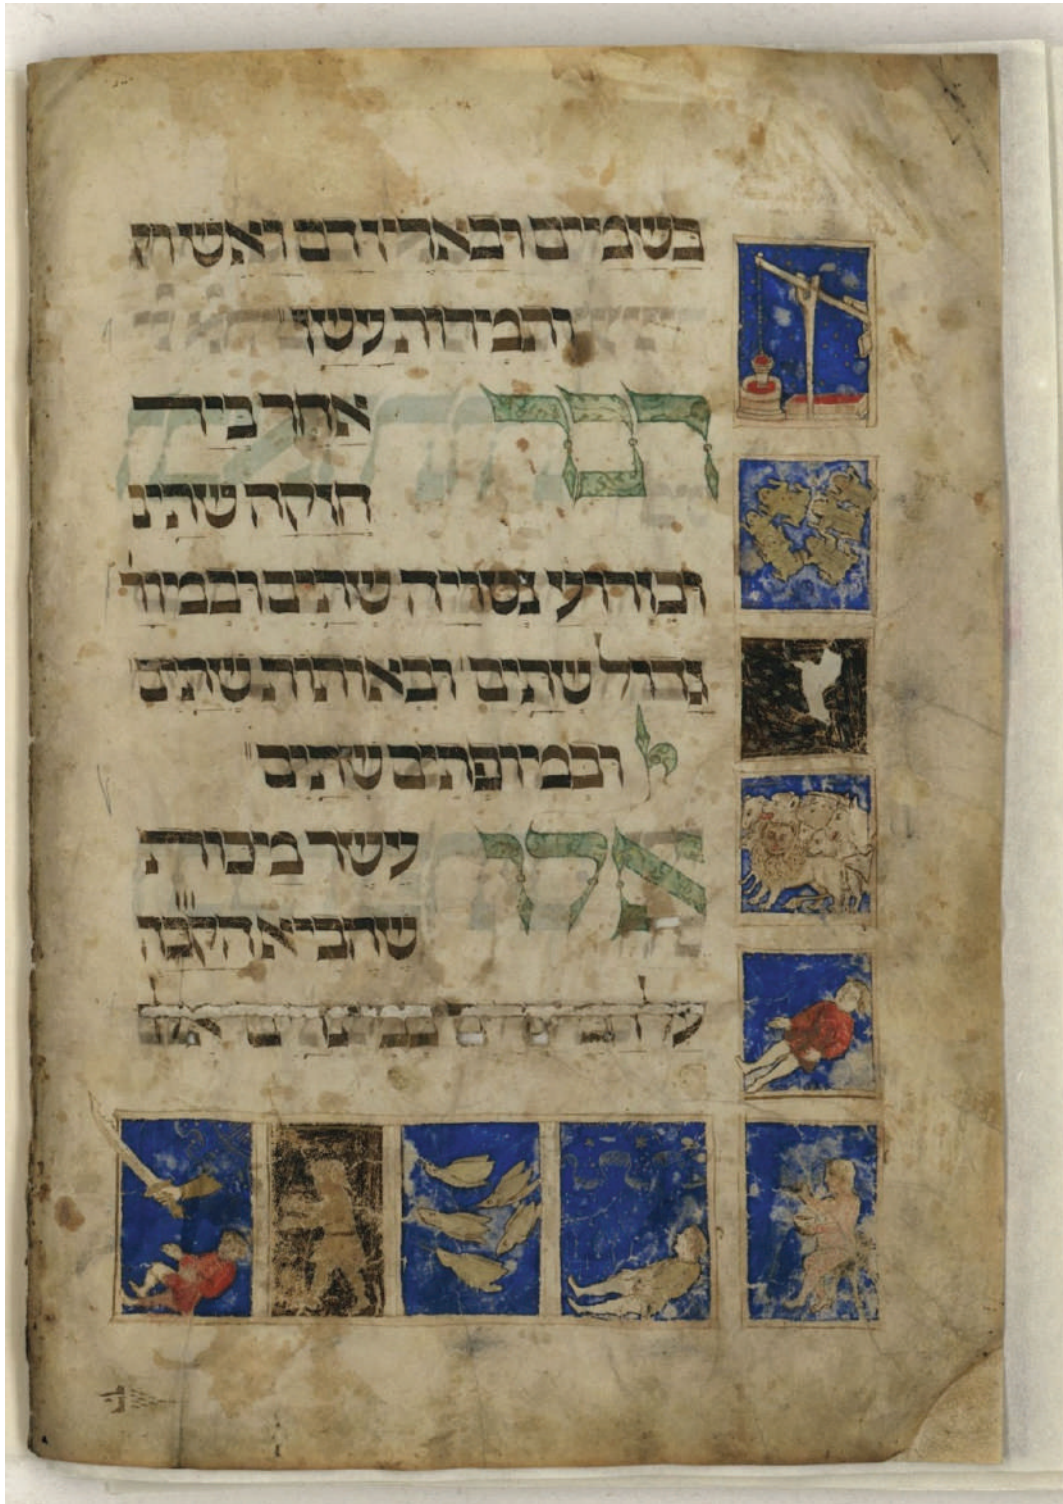 בשמיים ובארץ דם ואש
ותמרות עשן
דבר אחר ביד
חזקה שתים
ובזרוע נטויה שתים ובמור
גדול שתים ובאותות שתים
ובמופתים שתים
אלו עשר מכות
שהביא הקבה